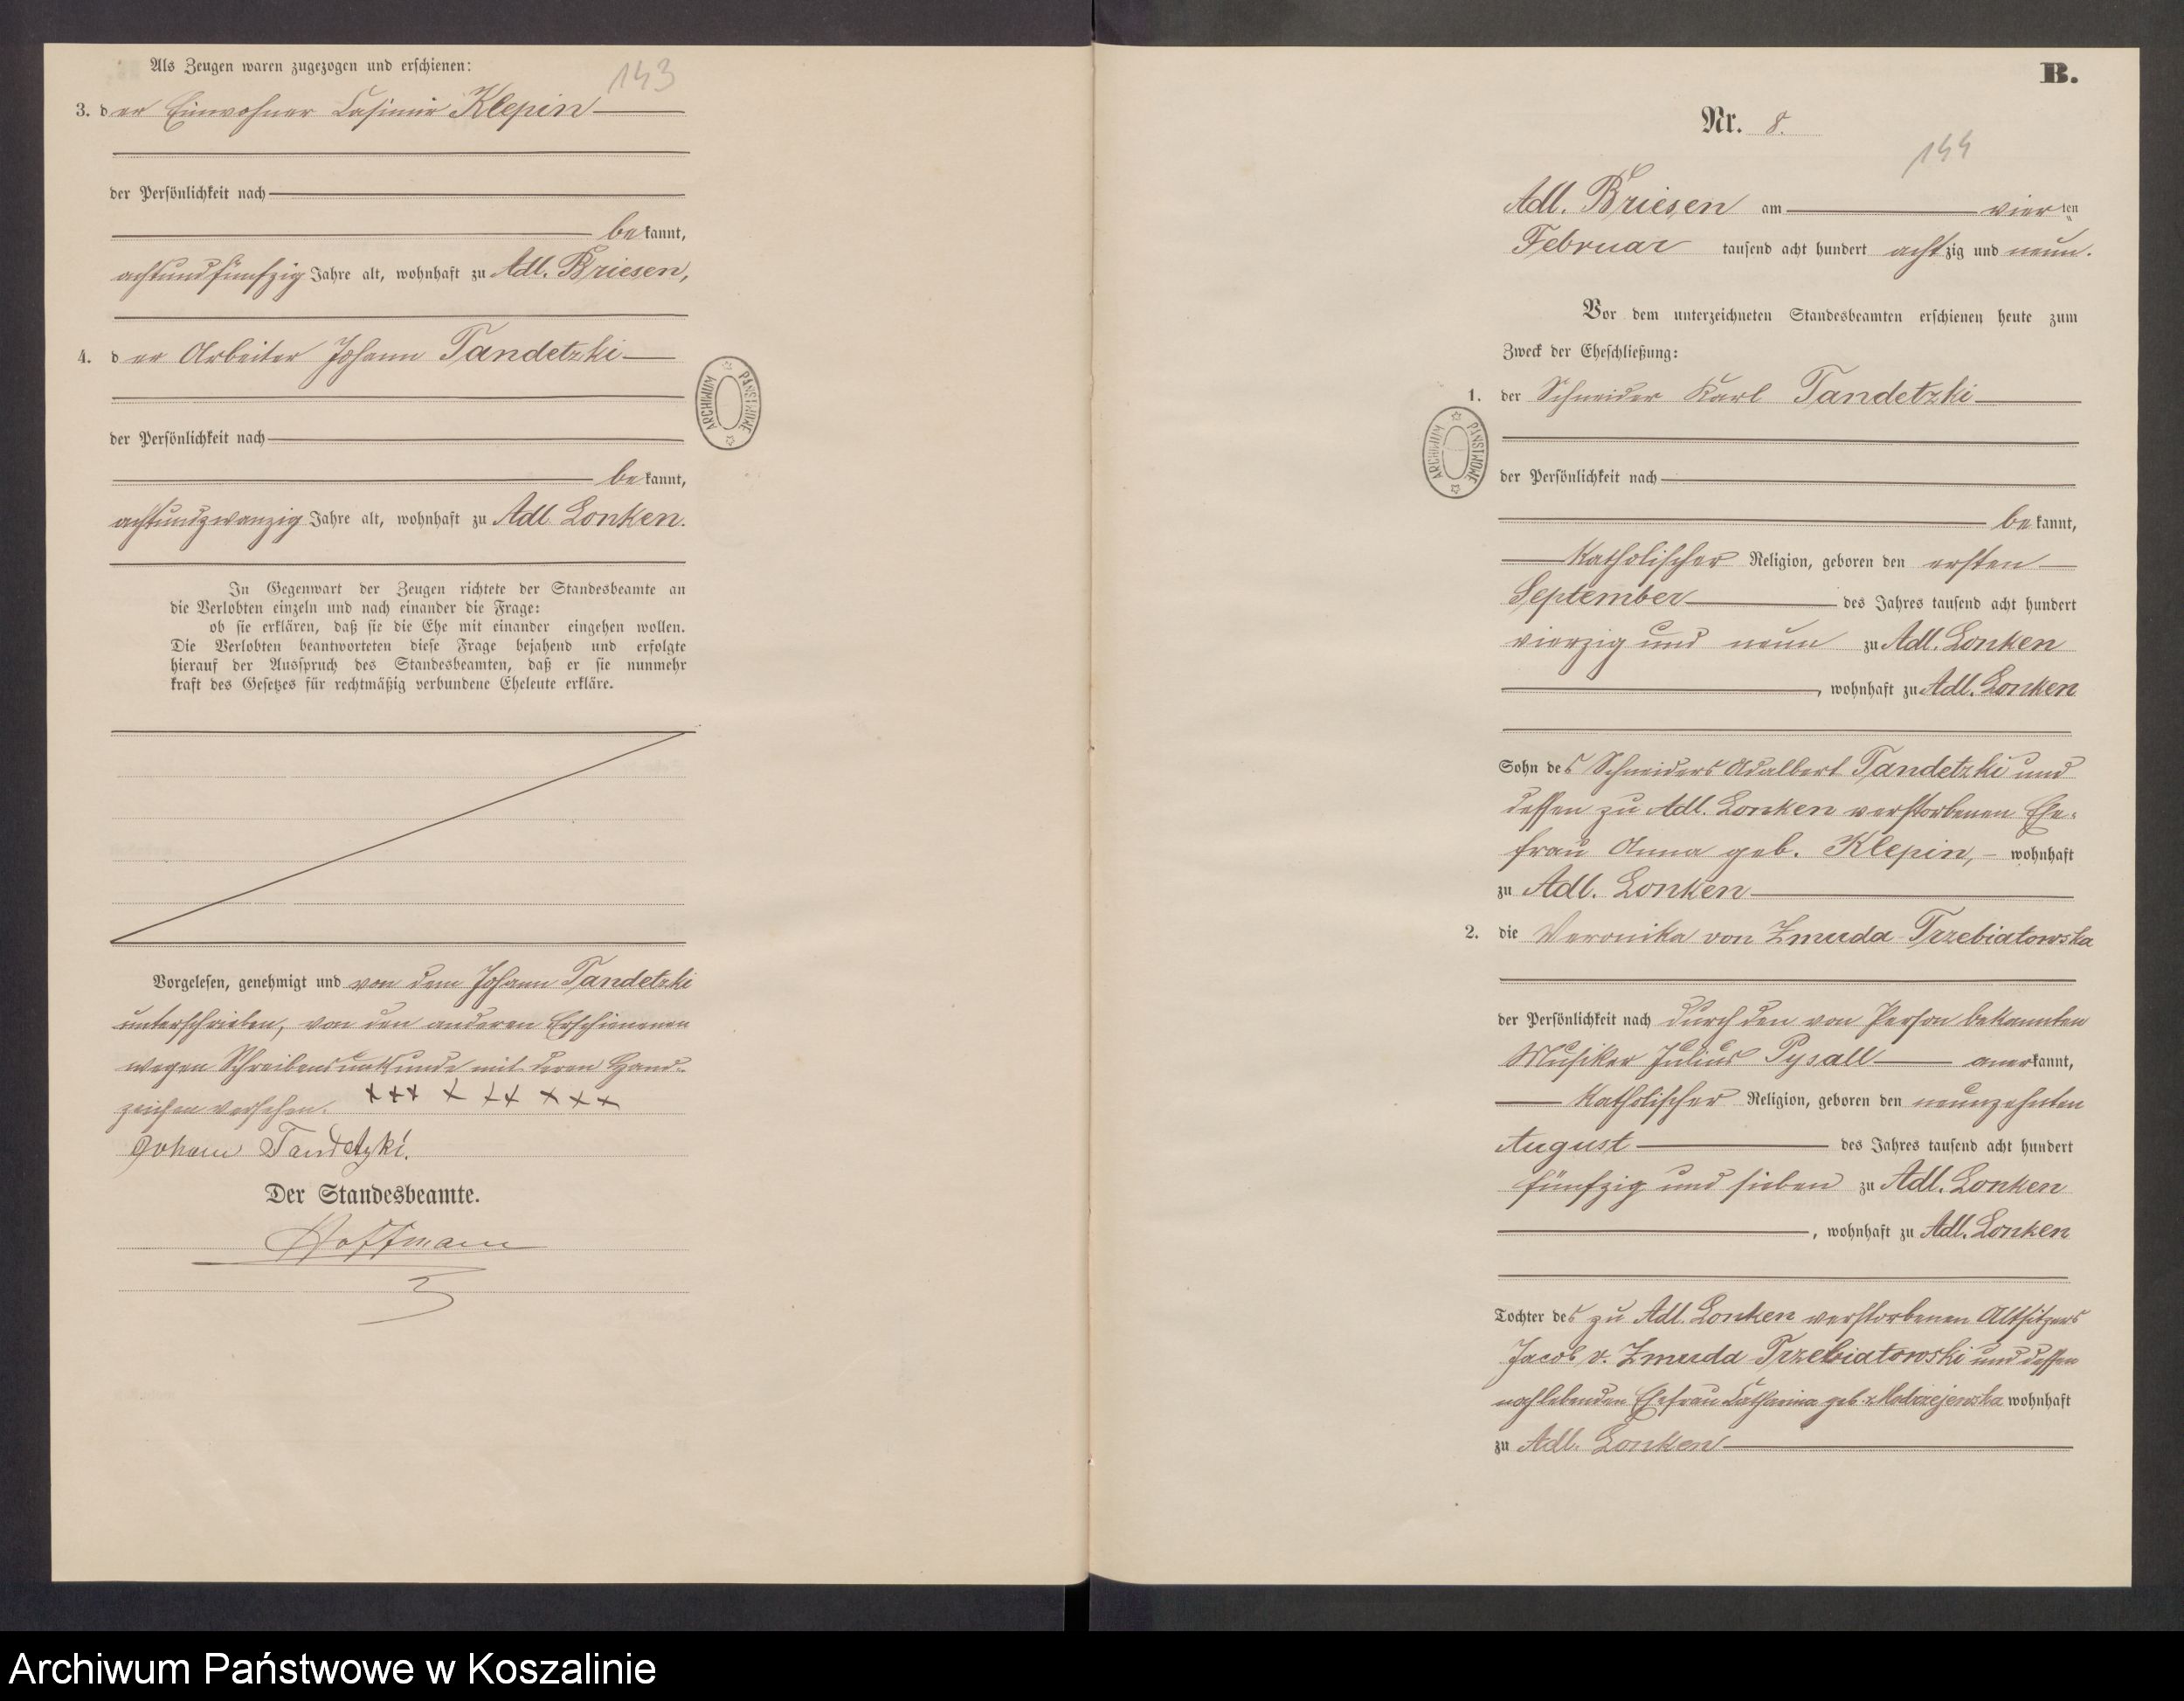 Als Zeugen waren zugezogen und erschienen:
143
3. der Einwohner Casimir Klepin
der Persönlichkeit nach
bekannt,
achtundfünfzig Jahre alt, wohnhaft zu Adl. Briesen,
4. der Arbeiter Johann Tandetzki
der Persönlichkeit nach
bekannt,
achtundzwanzig Jahre alt, wohnhaft zu Adl. Lonken.
In Gegenwart der Zeugen richtete der Standesbeamte an
die Verlobten einzeln und nach einander die Frage:
ob sie erklären, daß sie die Ehe mit einander eingehen wollen.
Die Verlobten beantworteten diese Frage bejahend und erfolgte
hierauf der Ausspruch des Standesbeamten, daß er sie nunmehr
kraft des Gesetzes für rechtmäßig verbundene Eheleute erkläre.
Vorgelesen, genehmigt und von dem Johann Tandetzki
unterschrieben, von den anderen Erschienenen
wegen Schreibensunkunde mit deren Hand-
zeichen versehen. +++ + ++ +++
Johann Tandetzki.
Der Standesbeamte.
Hoffmann
ARCHIWUM PAŃSTWOWE
B.
Nr. 8.
144
Adl. Briesen am vierten
Februar tausend acht hundert achtzig und neun.
Vor dem unterzeichneten Standesbeamten erschienen heute zum
Zweck der Eheschließung:
1. der Schneider Karl Tandetzki
ARCHIWUM PAŃSTWOWE
der Persönlichkeit nach
bekannt,
Katholischer Religion, geboren den ersten
September des Jahres tausend acht hundert
vierzig und neun zu Adl. Lonken
, wohnhaft zu Adl. Lonken
Sohn des Schneiders Adalbert Tandetzki und
dessen zu Adl. Lonken verstorbenen Ehe-
frau Anna geb. Klepin, – wohnhaft
zu Adl. Lonken
2. die Veronika von Zmuda-Trzebiatowska
der Persönlichkeit nach durch den von Person bekannten
Musiker Julius Pysall anerkannt,
Katholischer Religion, geboren den neunzehnten
August des Jahres tausend acht hundert
fünfzig und sieben zu Adl. Lonken
, wohnhaft zu Adl. Lonken
Tochter des zu Adl. Lonken verstorbenen Altsitzers
Jacob v. Zmuda Trzebiatowski und dessen
nachlebenden Ehefrau Catharina geb. v. Modrzejewska wohnhaft
zu Adl. Lonken
Archiwum Państwowe w Koszalinie